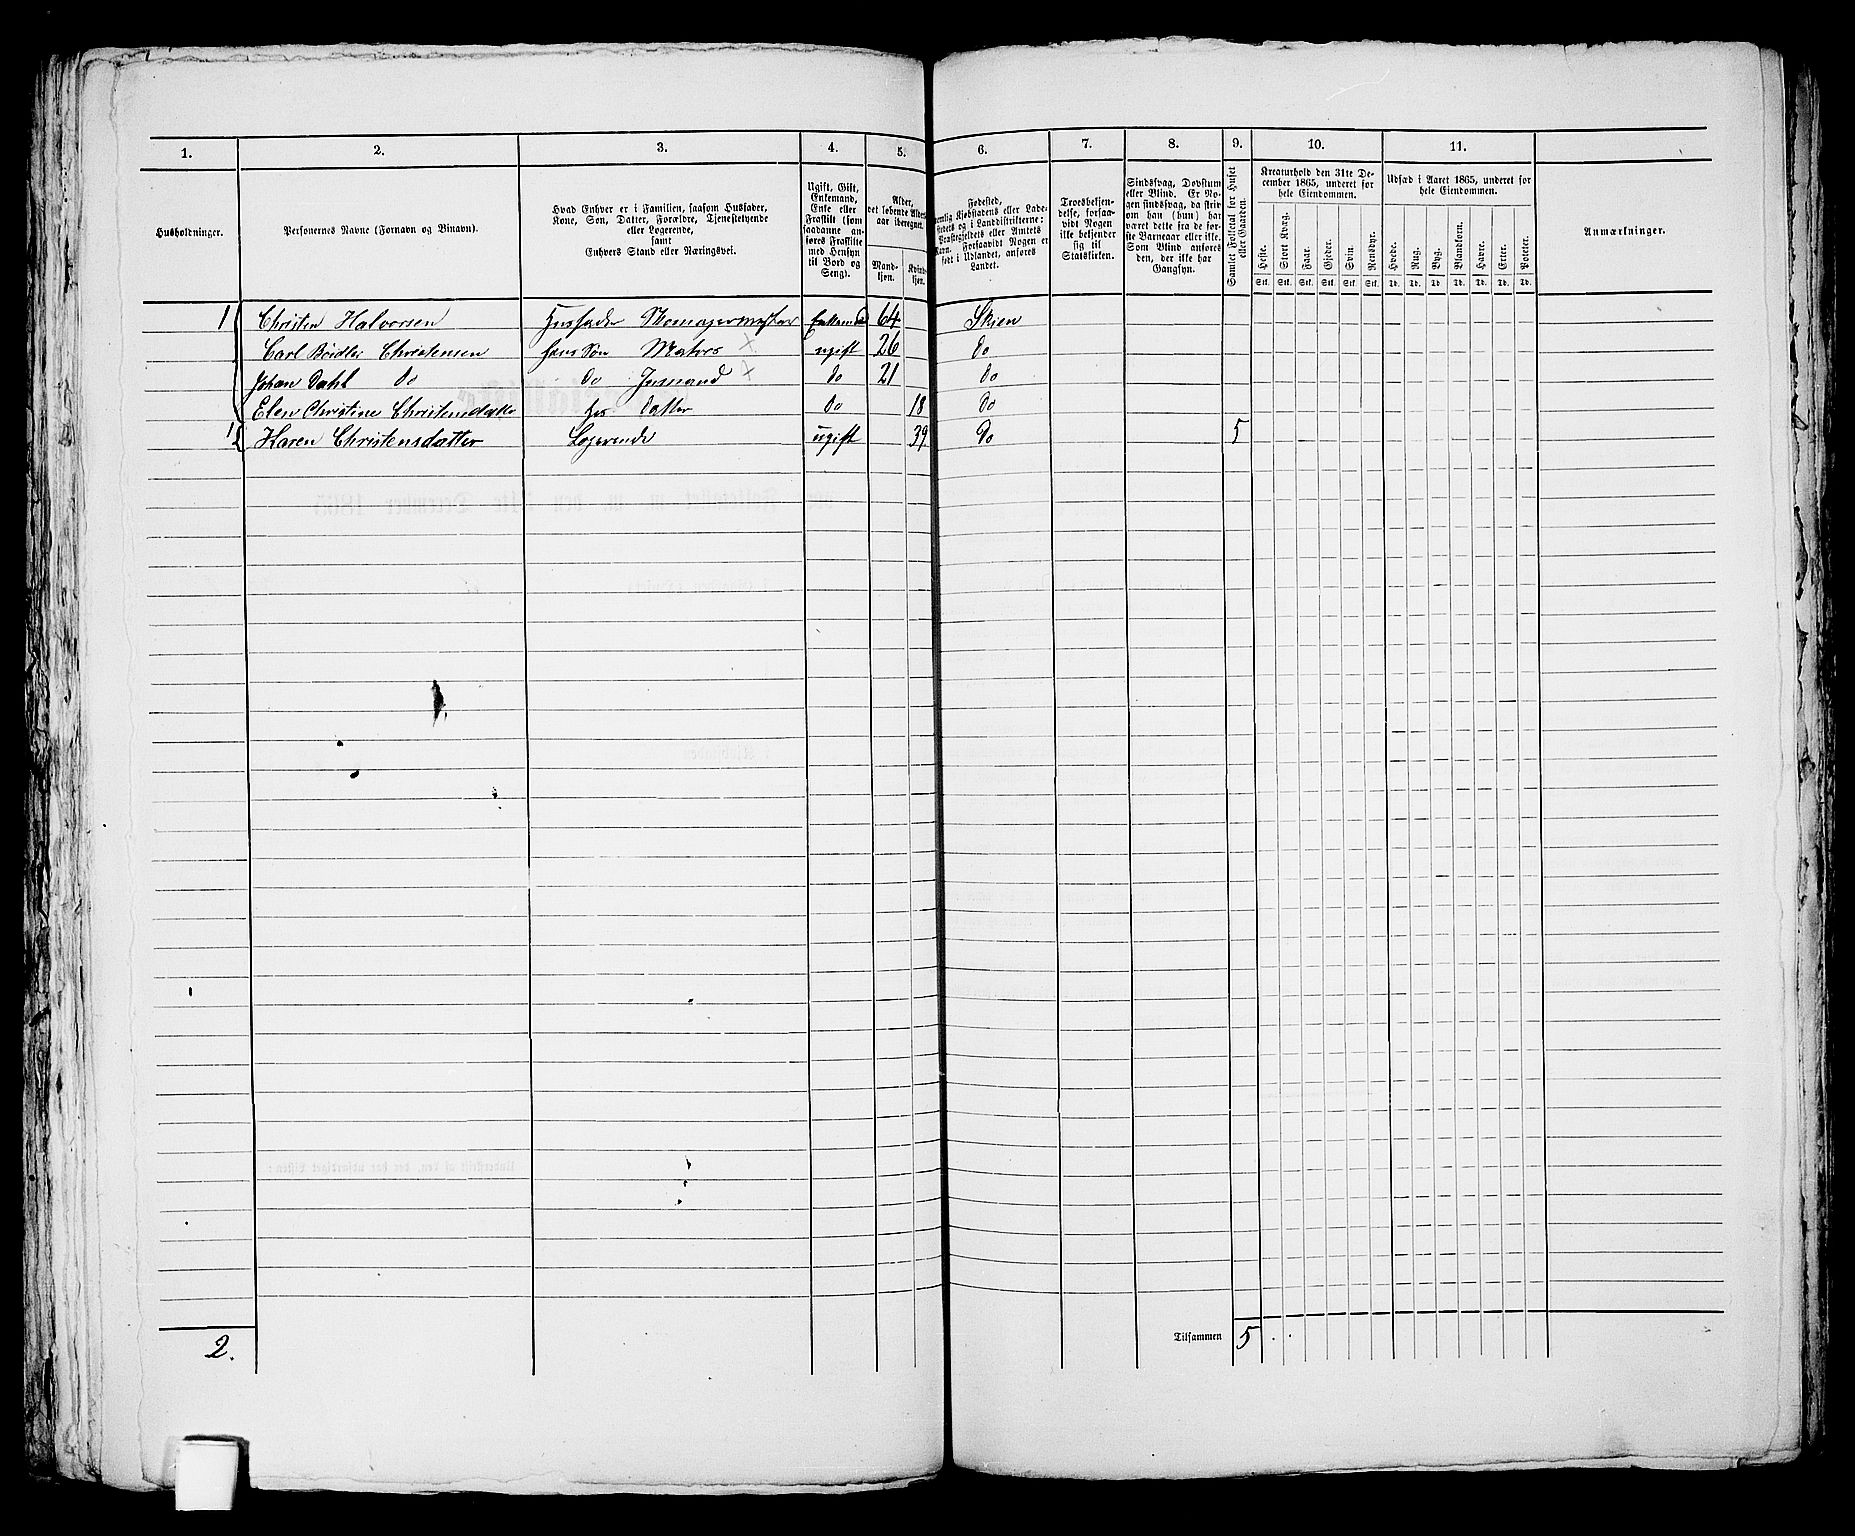 1. 2. 3. 4. 5. 6. 7. 8. 9. 10. 11.
Husholdninger.
Personernes Navne (Fornavn og Binavn).
Hvad Enhver er i Familien, saasom Husfader,
Kone, Søn, Datter, Forældre, Tjenestetyende
eller Logerende,
samt
Enhvers Stand eller Næringsvei.
Ugift, Gift,
Enkemand,
Enke eller
Fraskilt (som
saadanne an-
føres Fraskilte
med Hensyn
til Bord og
Seng).
Alder,
det løbende Alders-
aar iberegnet.
Mand-
kjøn.
Kvind-
kjøn.
Fødested,
nemlig Kjøbstadens eller Lade-
stedets og i Landdistrikterne:
Præstegjeldets eller Amtets
Navn. Forsaavidt Nogen er
født i Udlandet, anføres
Landet.
Troesbekjen-
delse, forsaa-
vidt Nogen
ikke bekjender
sig til
Statskirken.
Sindssvag, Døvstum
eller Blind. Er No-
gen sindssvag, da skriv
om han (hun) har
været dette fra de før-
ste Barneaar eller ikke.
Som Blind anføres
den, der ikke har
Gangsyn.
Samlet Folketal for Huset
eller Gaarden.
Kreaturhold den 31te De-
cember 1865, underet for
hele Eiendommen.
Heste. Stort Kvæg. Faar. Gjeder. Svin. Rensdyr.
Stk. Stk. Stk. Stk. Stk. Stk.
Udsæd i Aaret 1865, underet for
hele Eiendommen.
Hvede. Rug. Byg. Blandkorn. Havre. Erter. Poteter.
Td. Td. Td. Td. Td. Td. Td.
Anmærkninger.
1 Christen Halvorsen Husfader Skomagermester Enkemand 64 Skien
Carl Christensen hans Søn Matros × ugift 26 do
Johan Dahl do do Jusmand × do 21 do
Elen Christine Christensdatter hs Datter do 18 do
1 Karen Christensdatter Logerende ugift 39 do 5
2.
Tilsammen 5